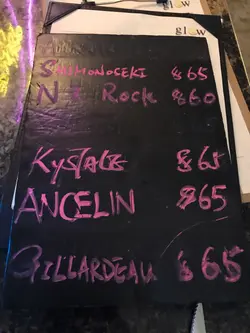 glow
SHIMONOSEKI $65
N Z Rock $60
KYSTALE $65
ANCELIN $65
GILLARDEAU $65